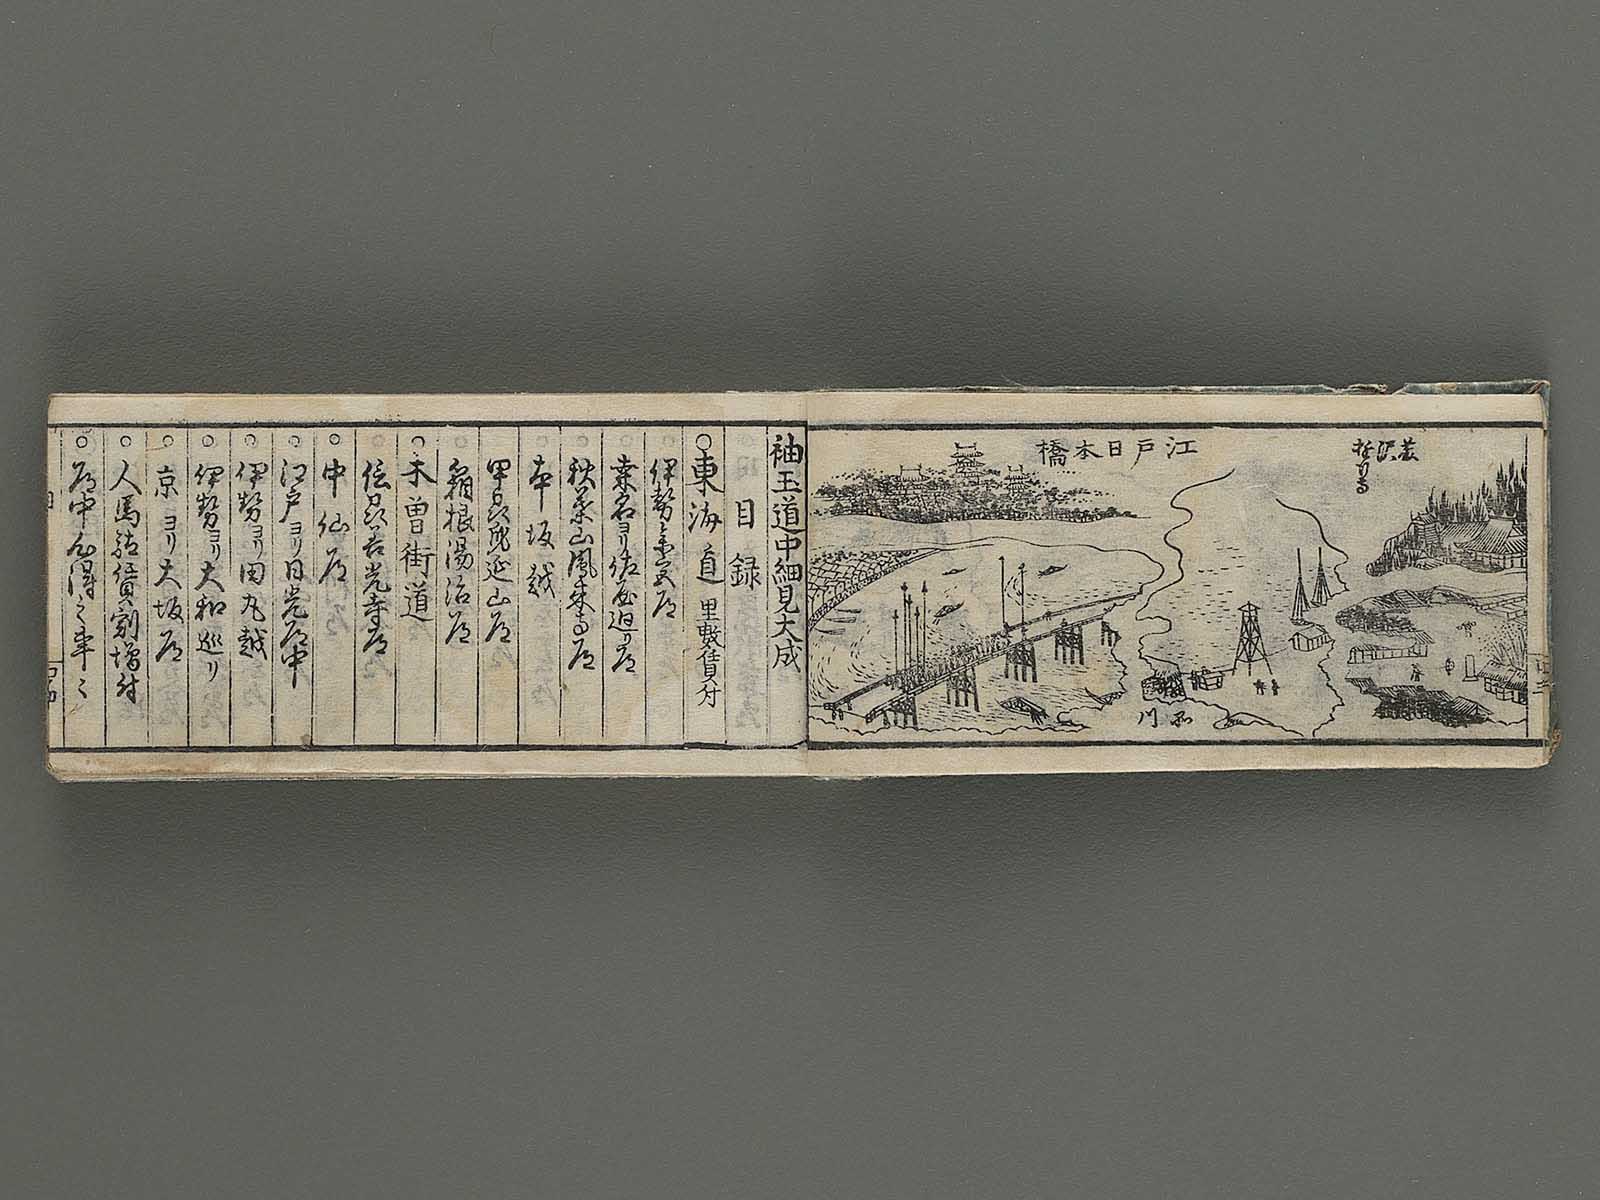 藤沢
遊行寺
江戸日本橋
品川
袖玉道中細見大成
目録
○東海道 里数賃付
○伊勢参宮道
○桑名ヨリ佐屋廻り道
○秋葉山鳳来寺道
○本坂越
○甲州身延山道
○箱根湯治道
○木曽街道
○信州善光寺道
○中仙道
○江戸ヨリ日光道中
○伊勢ヨリ田丸越
○伊勢ヨリ大和巡り
○京ヨリ大坂道
○人馬駄賃割増付
○道中心得之事